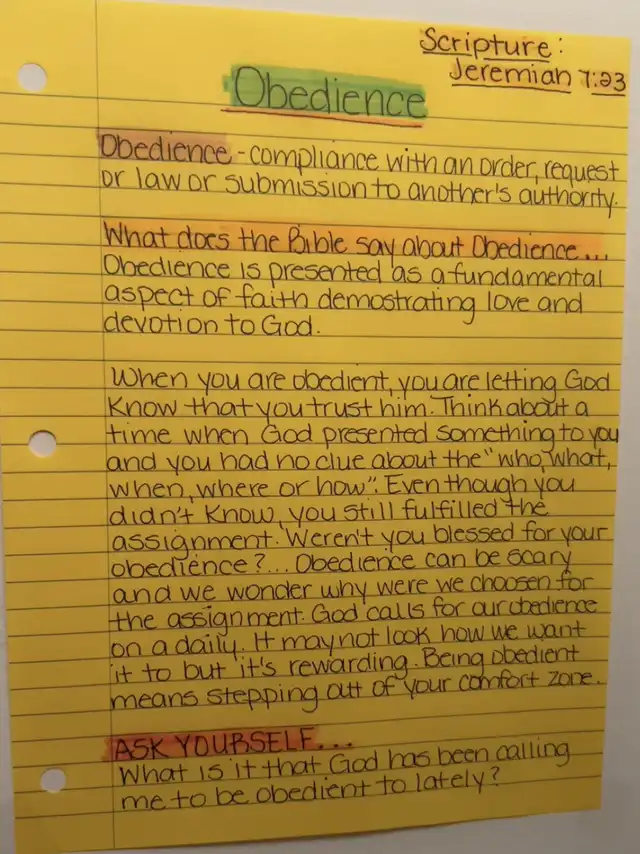 Scripture:
Jeremiah 7:23
Obedience
Obedience - compliance with an order, request
or law or submission to another's authority.
What does the Bible say about Obedience...
Obedience is presented as a fundamental
aspect of faith demostrating love and
devotion to God.
When you are obedient, you are letting God
know that you trust him. Think about a
time when God presented something to you
and you had no clue about the "who, what,
when, where or how". Even though you
didn't know, you still fulfilled the
assignment. Weren't you blessed for your
obedience?... Obedience can be scary
and we wonder why were we choosen for
the assignment. God calls for our obedience
on a daily. It may not look how we want
it to but it's rewarding. Being obedient
means stepping out of your comfort zone.
ASK YOURSELF...
What is it that God has been calling
me to be obedient to lately?